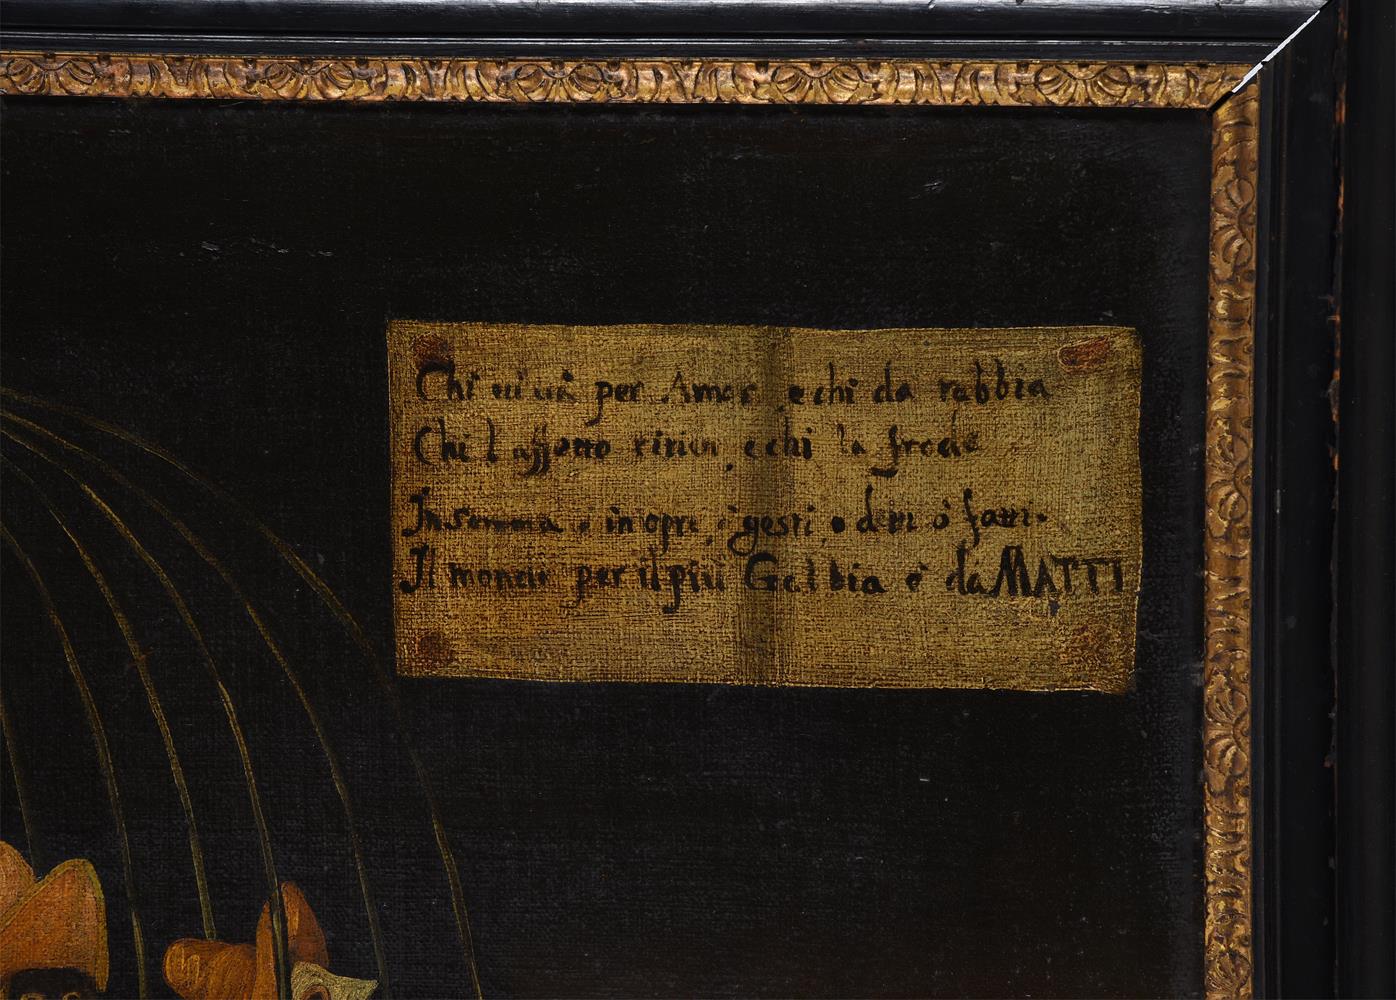 Chi per Amor e chi da rabbia
Chi l affetto e chi la frode
In somma è in opre, ò gesti, o detti ò fatti.
Il mondo per il più Gabbia è da MATTI